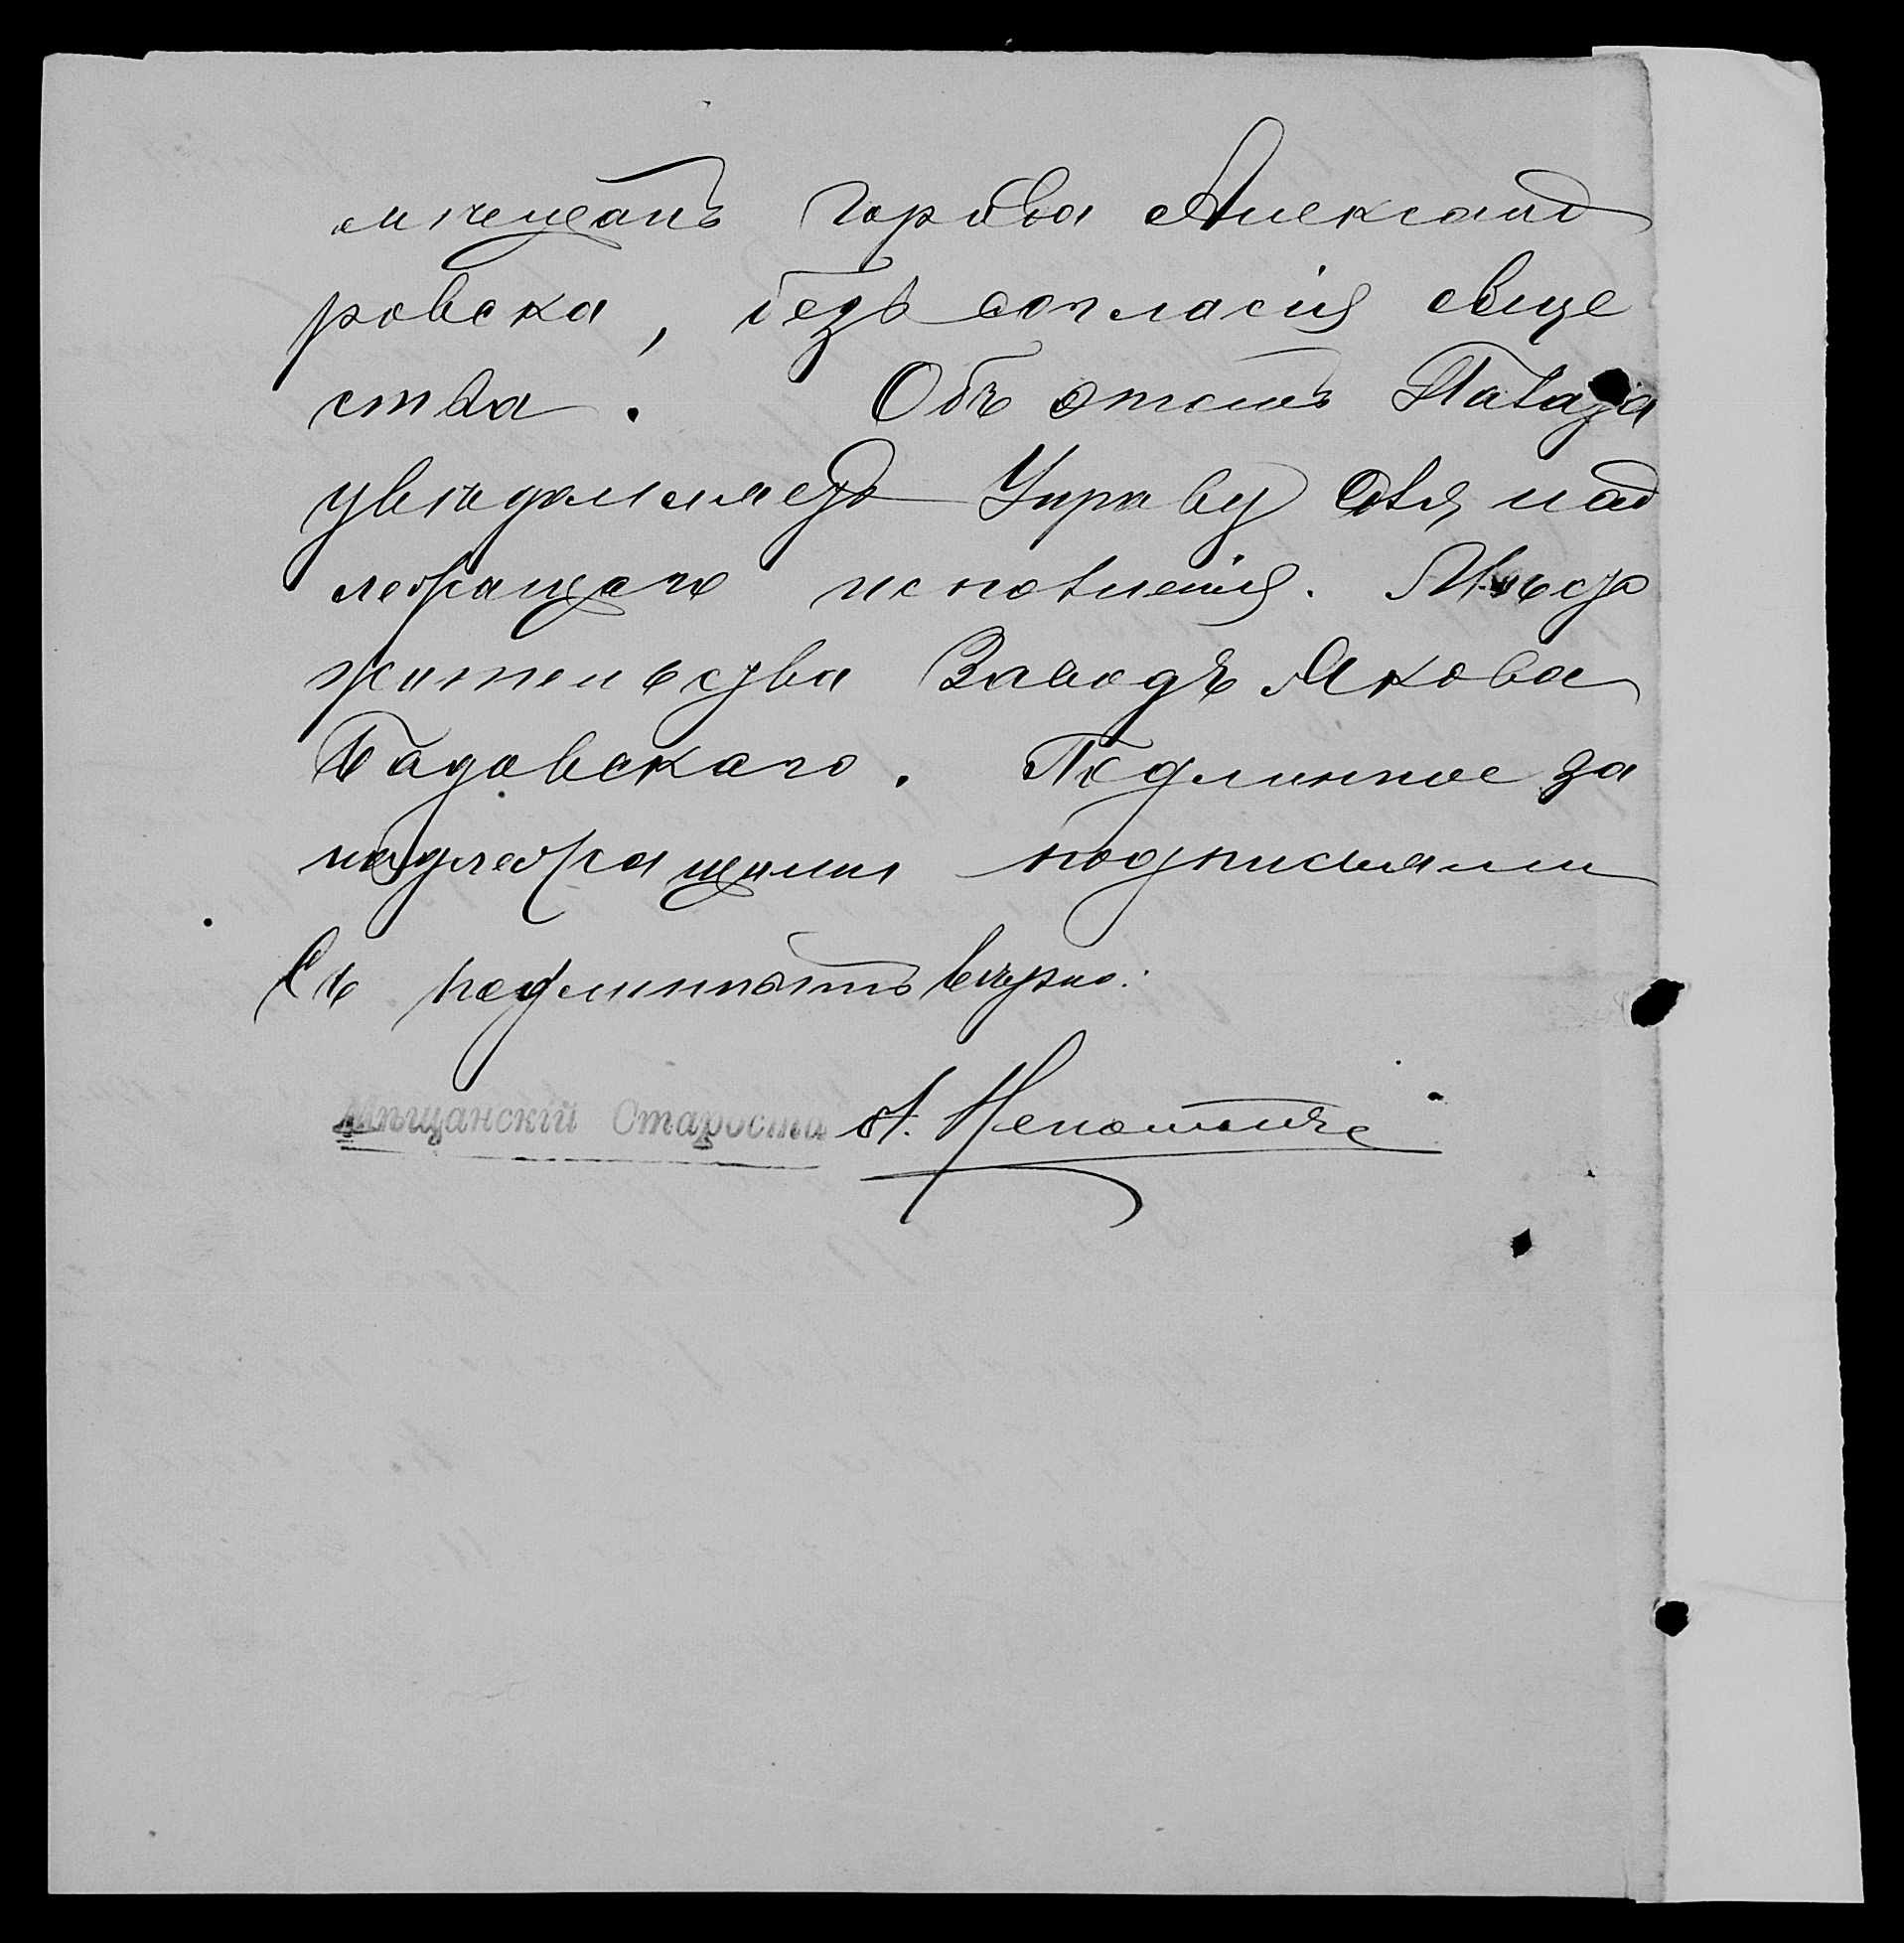 мѣщанъ города Александ
ровска, безъ согласія обще
ства. Объ этомъ Палата
увѣдомляетъ Управу для над
лежащаго исполненія. Мѣсто
жительства Заводъ Якова
Бадовскаго. Подлинное за
надлежащими подписями
Съ подлиннымъ вѣрно:
Мѣщанскій Староста А.